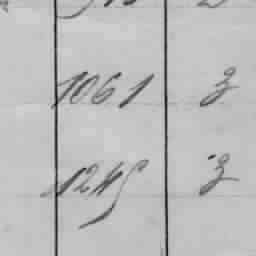 1061 3
1245 3